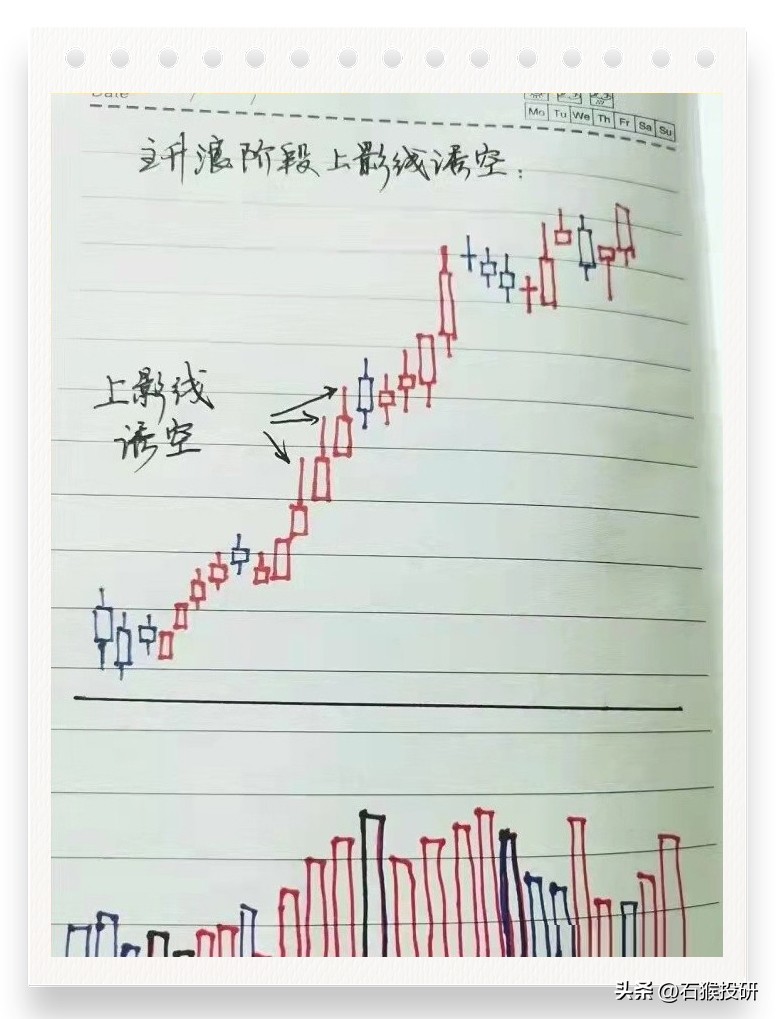 Date / /
Mo Tu We Th Fr Sa Su
主升浪阶段上影线诱空：
上影线
诱空
头条 @石猴投研